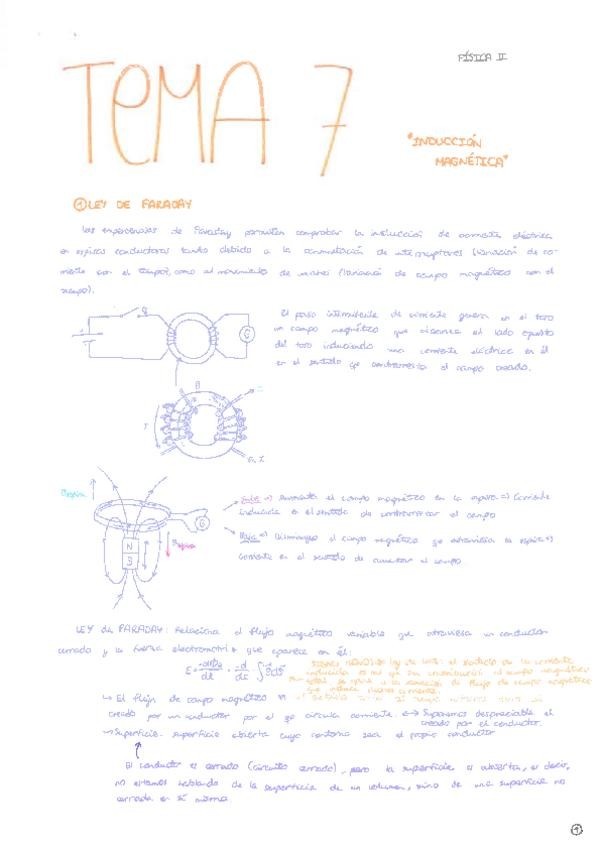 FÍSICA II
TEMA 7
"INDUCCIÓN
MAGNÉTICA"
① LEY DE FARADAY
Las experiencias de Faraday permiten comprobar la inducción de corriente eléctrica
en espiras conductoras tanto debido a la conmutación de interruptores (variación de co-
rriente con el tiempo), como al movimiento de imanes (variación de campo magnético con el
tiempo).
El paso intermitente de corriente genera en el toro
un campo magnético que alcanza el lado opuesto
del toro induciendo una corriente eléctrica en él
en el sentido que contrarresta el campo creado.
G
B
I
Sube => Aumenta el campo magnético en la espira => Corriente
inducida en el sentido de contrarrestar el campo
G
N
S
Baja => Disminuye el campo magnético que atraviesa la espira =>
Corriente en el sentido de aumentar el campo.
LEY de FARADAY: Relaciona el flujo magnético variable que atraviesa un conductor
cerrado y la fuerza electromotriz que aparece en él:
SIGNO NEGATIVO ley de Lenz: el sentido de la corriente
inducida es tal que su contribución al campo magnético
total se opone a la variación de flujo de campo magnético
que induce dicha corriente.
↳ El flujo de campo magnético es
creado por un conductor por el que circula corriente. ↔ Suponemos despreciable el
creado por el conductor.
↳ Superficie: superficie abierta cuyo contorno sea el propio conductor
El conductor es cerrado (circuito cerrado), pero la superficie es abierta, es decir,
no estamos hablando de la superficie de un volumen, sino de una superficie no
cerrada en sí misma.
①